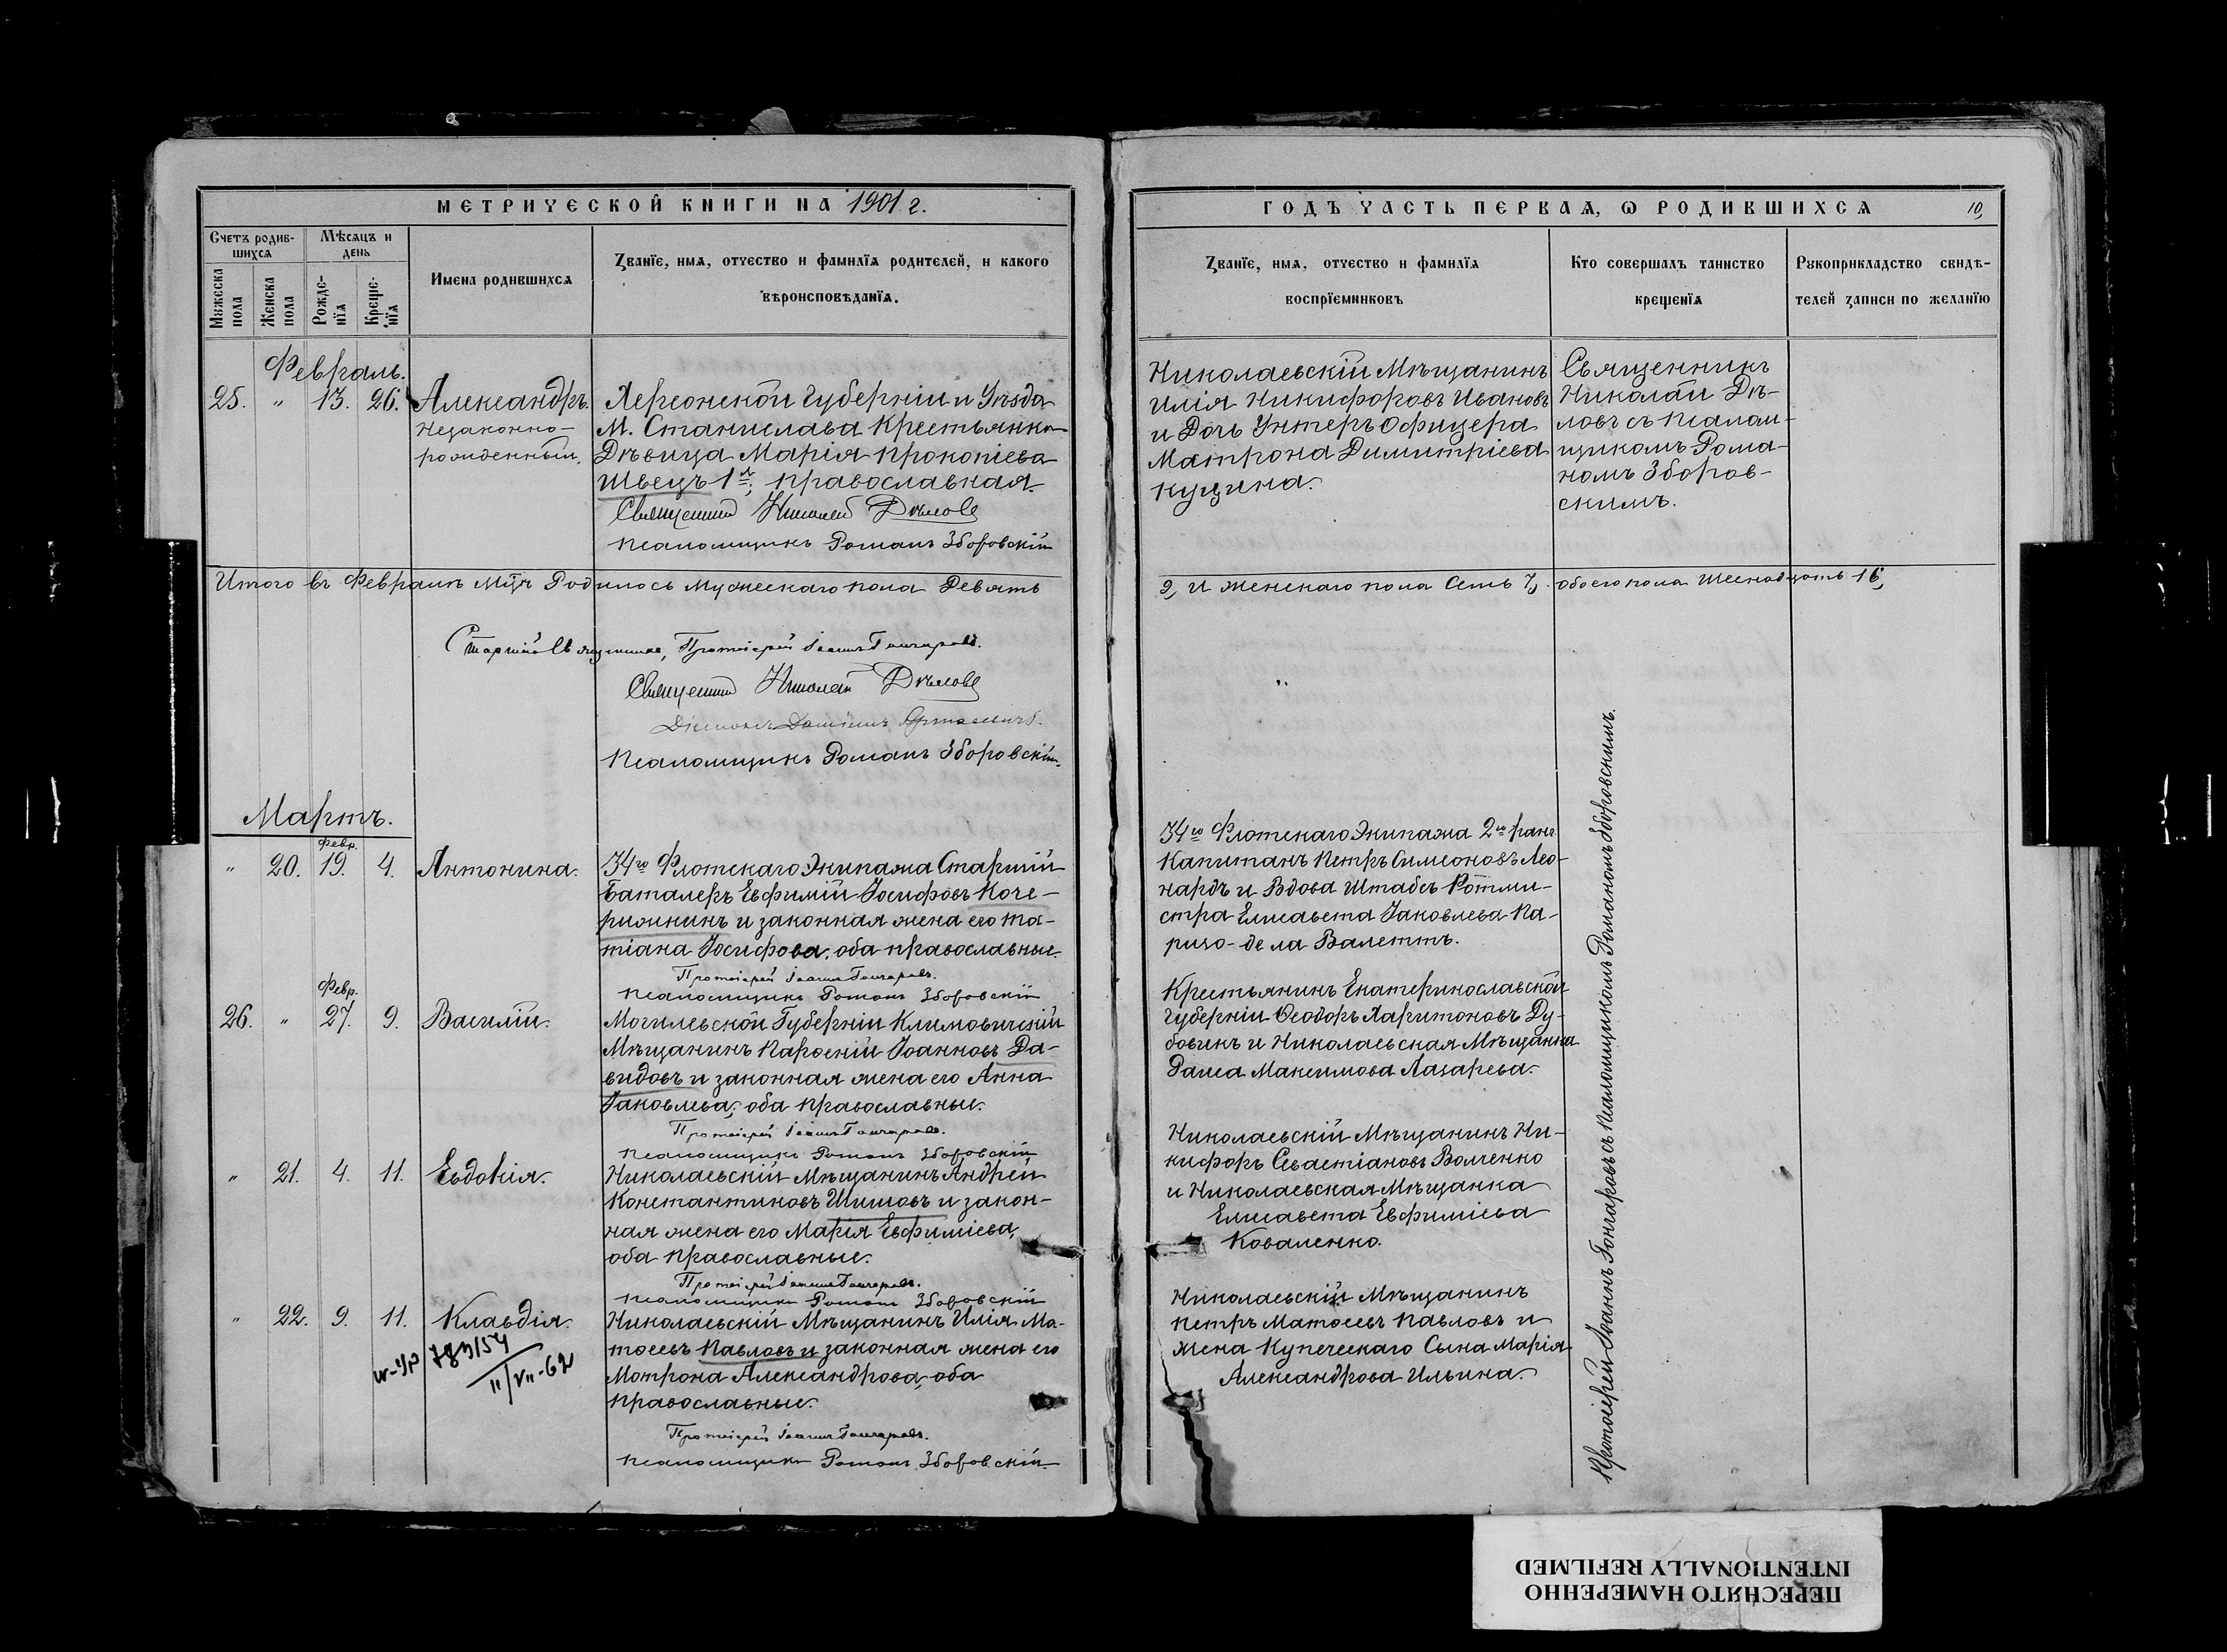 МЕТРИЧЕСКОЙ КНИГИ НА 1901 г.
Счетъ родив-
шихся
Мѣсяцъ и
день
Мужеска пола
Женска пола
Рожде-
нїя
Креще-
нїя
Имена родившихся
Званїе, имя, отчество и фамилїя родителей, и какого
вѣроисповѣданїя.
Февраль.
25. " 13. 26. Александръ.
Незаконно-
рожденный.
Херсонской Губерніи и Уѣзда
М. Станислава Крестьянка
Дѣвица Марія Прокопіева
Швецъ 1я; православная.
Священникъ Николай Дѣловъ
Псаломщикъ Романъ Зборовскій
Итого въ Февралѣ Мцѣ Родилось Мужескаго пола Девять
Старшій Священникъ, Протоіерей Іоаннъ Гончаровъ.
Священникъ Николай Дѣловъ
Псаломщикъ Романъ Зборовскій.
Мартъ.
Февр.
" 20. 19. 4. Антонина.
34го Флотскаго Экипажа Старшій
Баталеръ Евфимій Іосифовъ Коче-
рижкинъ и законная жена его Та-
тіана Іосифова, оба православные.
Протоіерей Іоаннъ Гончаровъ.
Псаломщикъ Романъ Зборовскій
Февр.
26. " 27. 9. Василій.
Могилевской Губерніи Климовичскій
Мѣщанинъ Парѳеній Іоанновъ Да-
видовъ и законная жена его Анна
Іаковлева, оба православные.
Протоіерей Іоаннъ Гончаровъ.
Псаломщикъ Романъ Зборовскій
" 21. 4. 11. Евдокія.
Николаевскій Мѣщанинъ Андрей
Константиновъ Шишовъ и закон-
ная жена его Марія Евфиміева,
оба православные.
Протоіерей Іоаннъ Гончаровъ.
Псаломщикъ Романъ Зборовскій
" 22. 9. 11. Клавдія.
II/VII-62
Николаевскій Мѣщанинъ Илія Ма-
тѳеевъ Павловъ и законная жена его
Мотрона Александрова, оба
православные.
Протоіерей Іоаннъ Гончаровъ.
Псаломщикъ Романъ Зборовскій.
ГОДЪ ЧАСТЬ ПЕРВАЯ, Ѡ РОДИВШИХСЯ
10,
Званїе, имя, отчество и фамилїя
воспрїемниковъ
Кто совершалъ таинство
крещенїя
Рукоприкладство свидѣ-
телей записи по желанїю
Николаевскій Мѣщанинъ
Илія Никифоровъ Ивановъ
и Дочь Унтеръ Офицера
Матрона Димитріева
Кущина.
Священникъ
Николай Дѣ-
ловъ съ Псалом-
щикомъ Рома-
номъ Зборов-
скимъ.
9, и Женскаго пола Семь 7, обоего пола Шеснадцать 16,
34го Флотскаго Экипажа 2го ранг
Капитанъ Петръ Симеоновъ Лео-
нардъ и Вдова Штабсъ Ротми-
стра Елисавета Іаковлева Па-
ризо-де ла Валеттъ.
Крестьянинъ Екатеринославской
Губерніи Ѳеодоръ Харитоновъ Ду-
бовикъ и Николаевская Мѣщанка
Даша Максимова Лазарева.
Николаевскій Мѣщанинъ Ни-
кифоръ Севастіановъ Волченко
и Николаевская Мѣщанка
Елисавета Евфиміева
Коваленко.
Николаевскій Мѣщанинъ
Петръ Матѳеевъ Павловъ и
Жена Купеческаго Сына Марія
Александрова Ильина.
Протоіерей Іоаннъ Гончаровъ съ Псаломщикомъ Романомъ Зборовскимъ.
ПЕРЕСНЯТО НАМЕРЕННО
INTENTIONALLY REFILMED